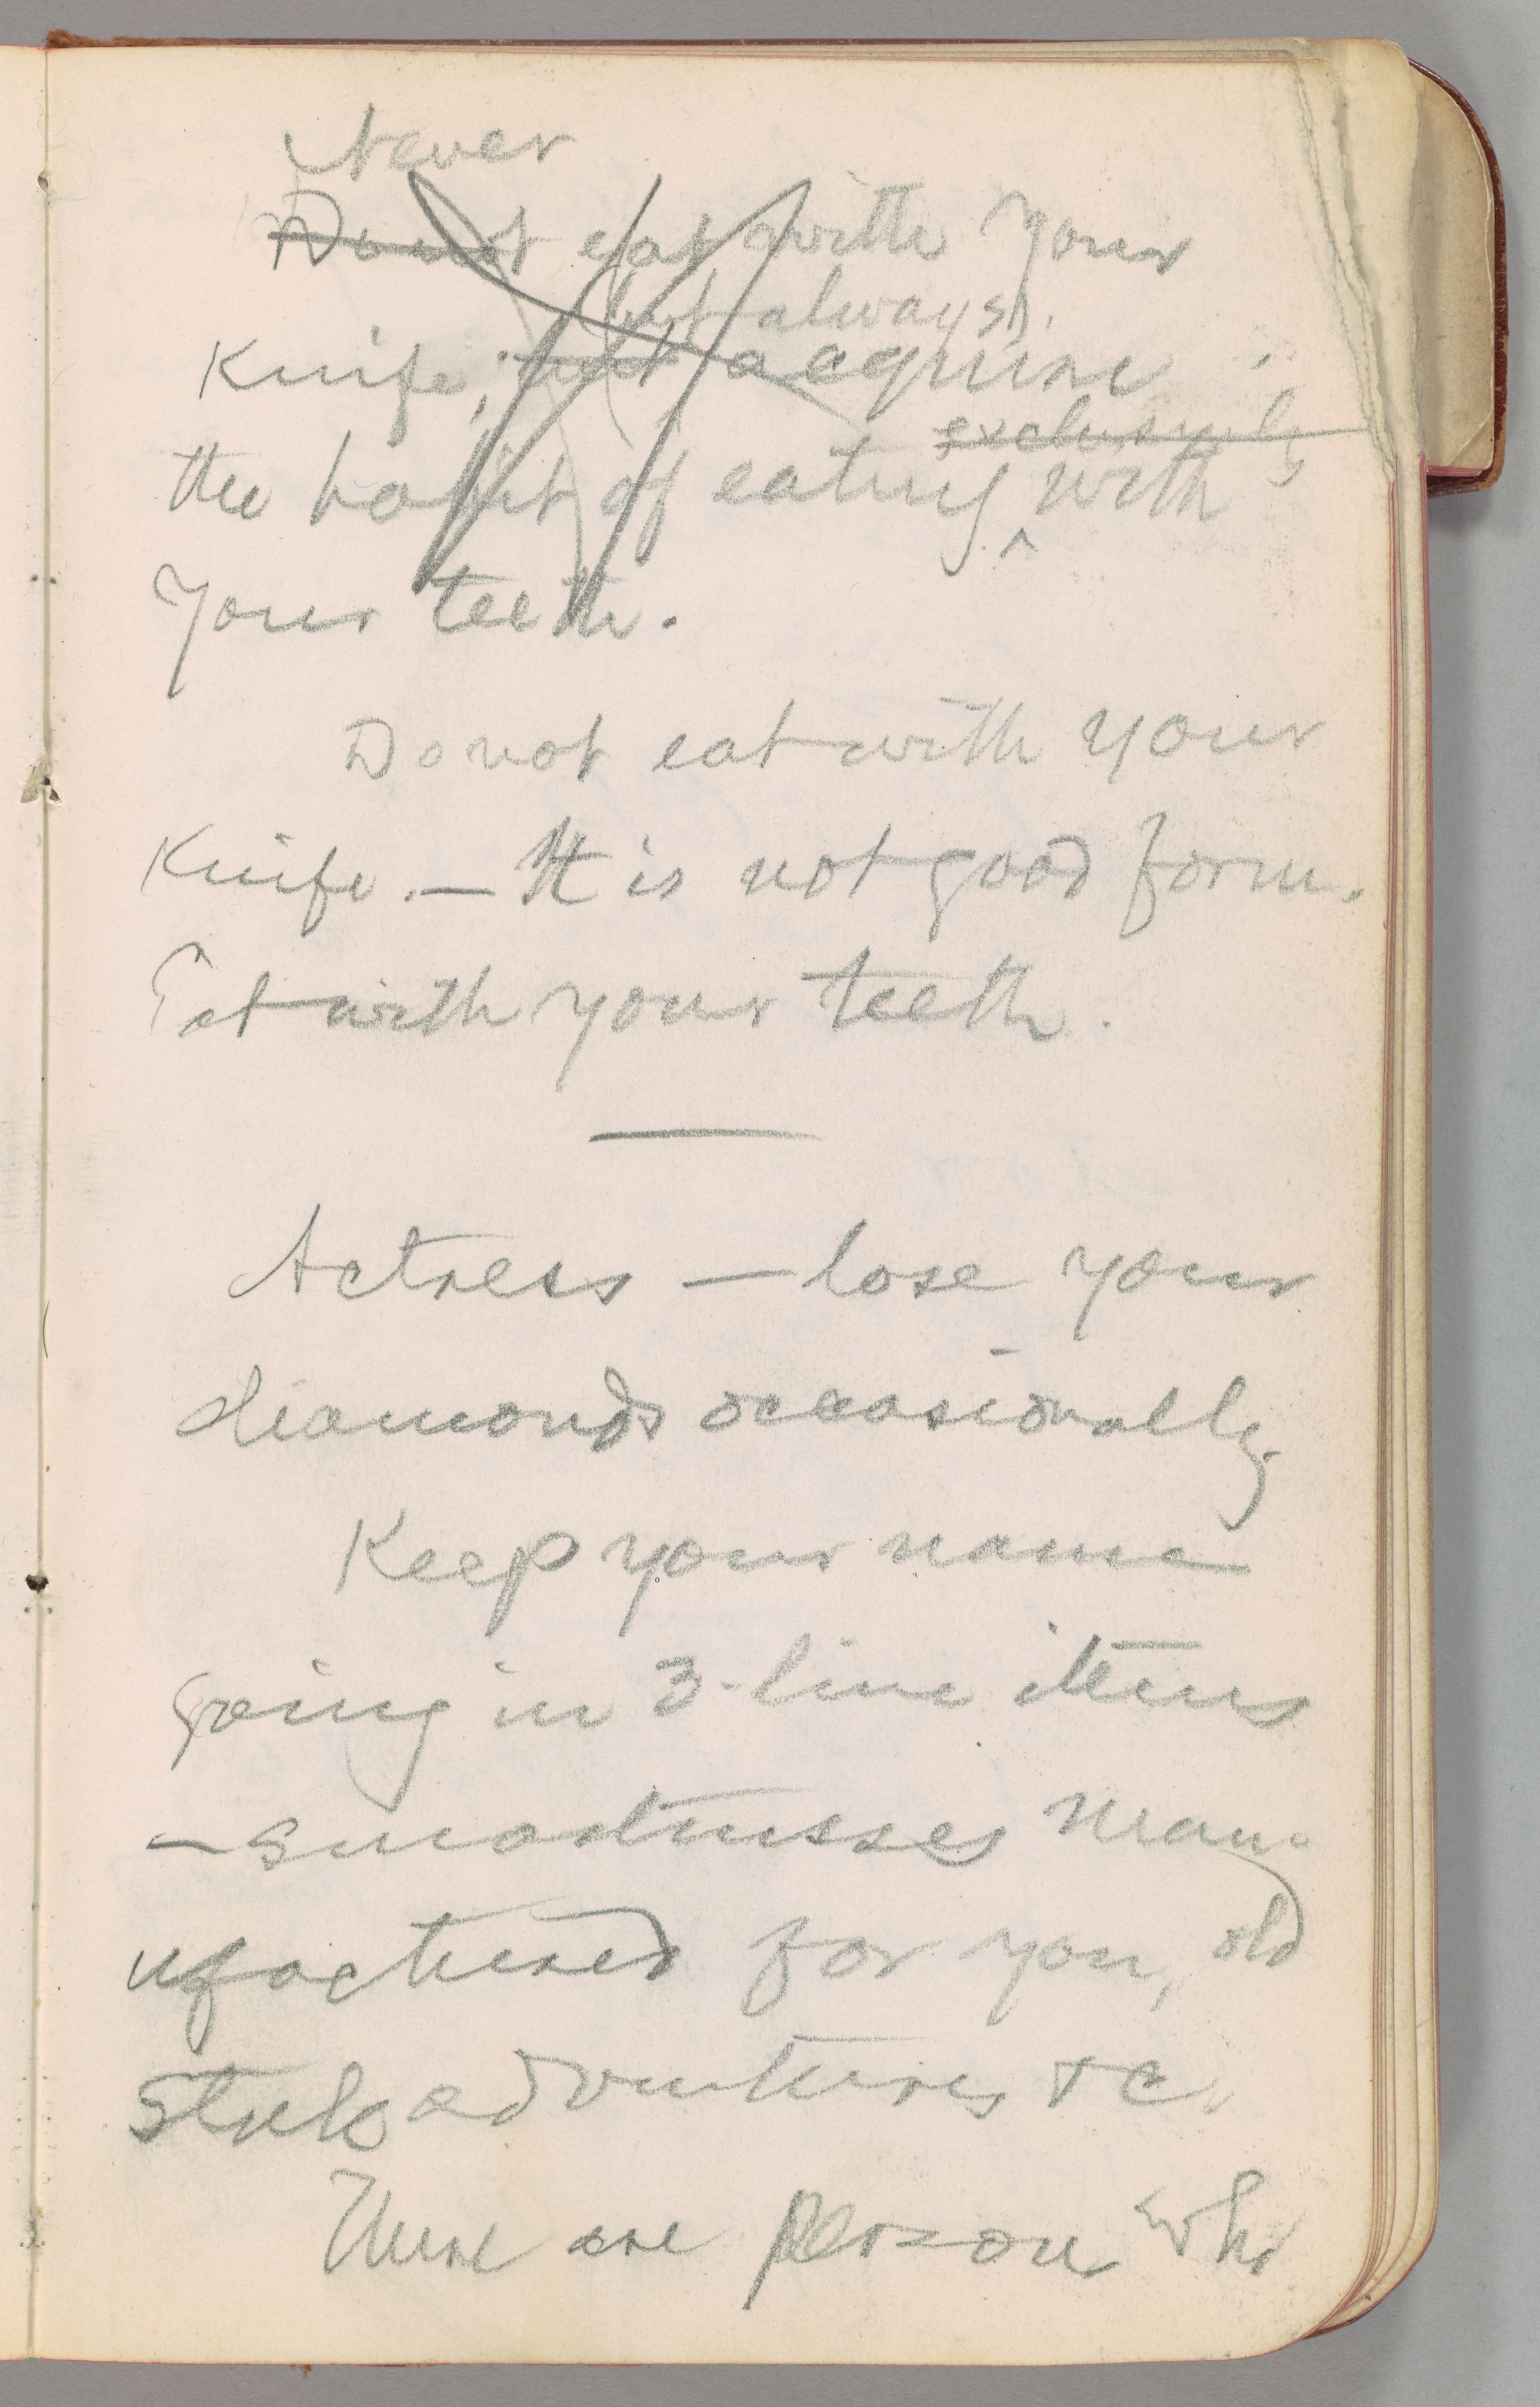 Never
Do not eat with your
but always
Knife, but acquire
exclusively
the habit of eating ^ with
your teeth.
Do not eat with your
Knife. — It is not good form.
Eat with your teeth.
Actress — lose your
diamonds occasionally
Keep your name
going in 3-line items
— smartnesses man-
ufactured for you, old
adventures &c.
There are person who